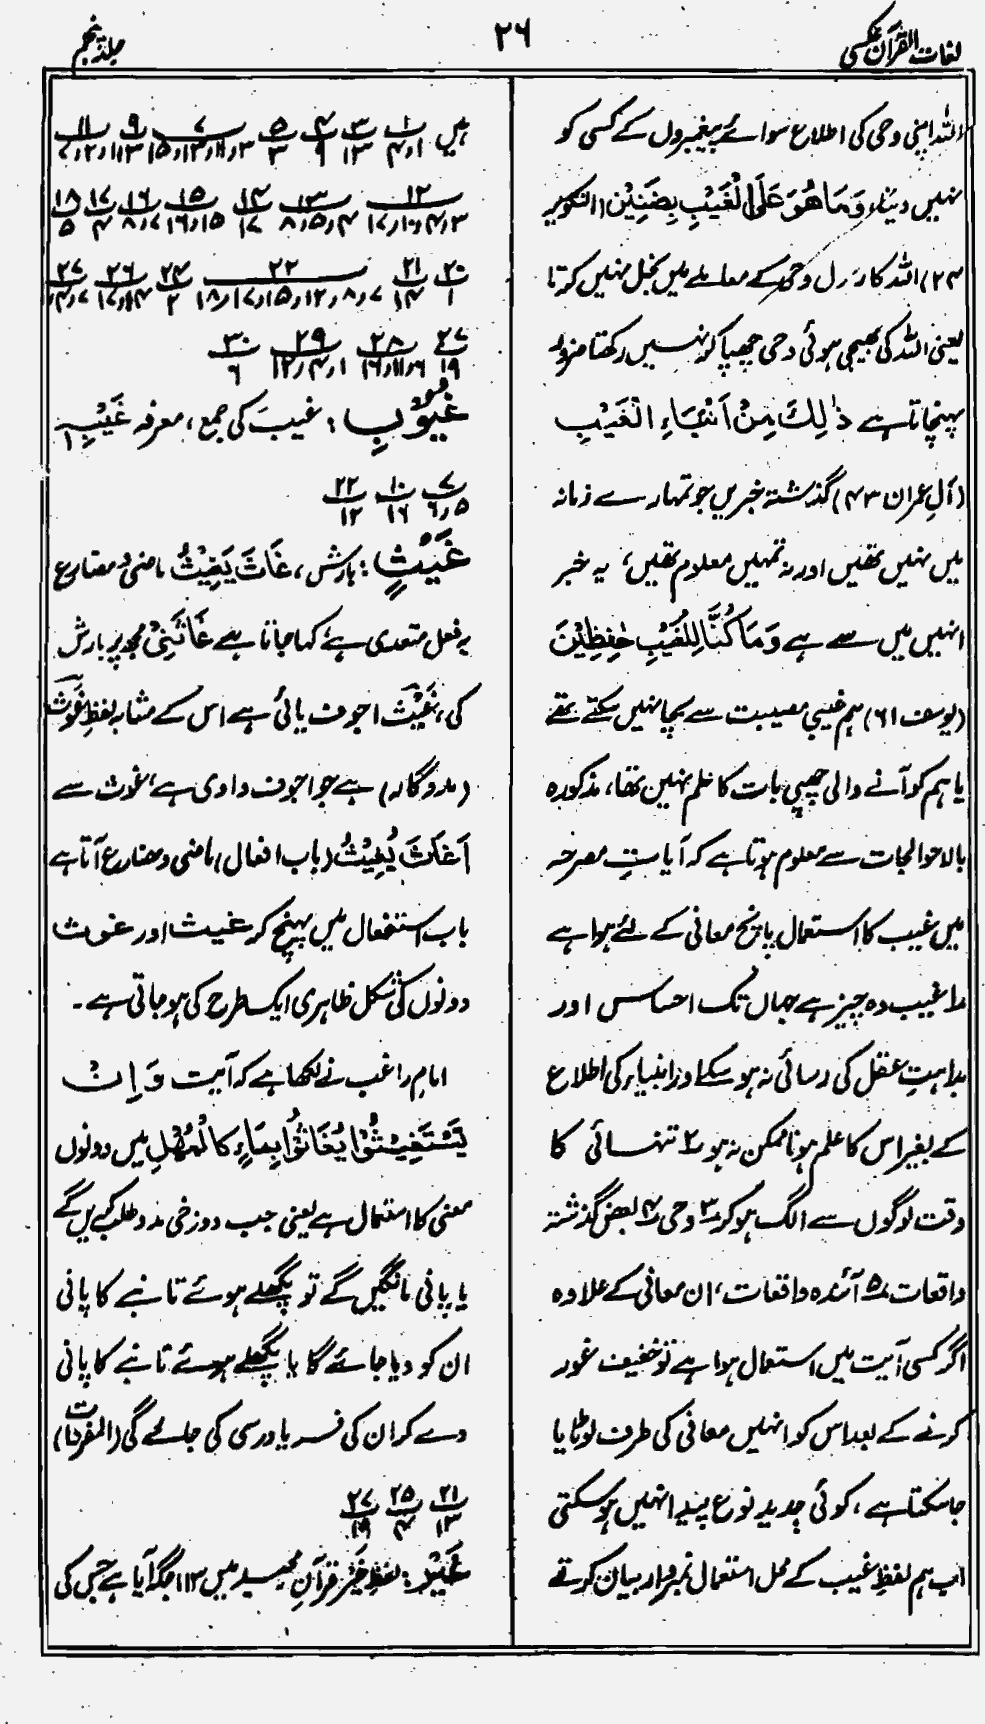 لغات القرآن عکسی
۲۶
جلد پنجم
اللہ اپنی وحی کی اطلاع سوائے پیغمبروں کے کسی کو
نہیں دیتا، وَمَا هُوَ عَلَى الْغَيْبِ بِضَنِيْنٍ (التکویر
۲۴) اللہ کا رسول وحی کے معاملے میں بخل نہیں کرتا
یعنی اللہ کی بھیجی ہوئی وحی چھپا کر نہیں رکھتا ضرور
پہنچاتا ہے ذٰلِكَ مِنْ اَنْبَاءِ الْغَيْبِ
(آلِ عمران ۴۳) گذشتہ خبریں جو تمہارے زمانہ
میں نہیں تھیں اور نہ تمہیں معلوم تھیں، یہ خبر
انہیں میں سے ہے وَمَا كُنَّا لِلْغَيْبِ حٰفِظِيْنَ
(یوسف ۶۱) ہم غیبی مصیبت سے بچا نہیں سکتے تھے
یا ہم کو آنے والی چھپی بات کا علم نہیں تھا، مذکورہ
بالا حوالجات سے معلوم ہوتا ہے کہ آیاتِ مصرحہ
میں غیب کا استعمال پانچ معانی کے لئے ہوا ہے
۱ غیب وہ چیز ہے جہاں تک احساس اور
بداہتِ عقل کی رسائی نہ ہو سکے اور انبیاء کی اطلاع
کے بغیر اس کا علم ہونا ممکن نہ ہو ۲ تنہائی کا
وقت لوگوں سے الگ ہو کر ۳ وحی ۴ بعض گذشتہ
واقعات، ۵ آئندہ واقعات، ان معانی کے علاوہ
اگر کسی آیت میں استعمال ہوا ہے تو خفیف غور
کرنے کے بعد اس کو انہیں معانی کی طرف لوٹایا
جا سکتا ہے، کوئی جدید نوع پیدا نہیں ہو سکتی
اب ہم لفظِ غیب کے محل استعمال نمبروار بیان کرتے
ہیں ۱ ۳ ۴ ۵ ۷ ۹ ۱۱
۱ر۴ ۱۳ ۹ ۳ ۳ر۱۱ر۱۳ر۱۵ ۱۳ر۱۱ ۷ر۲ر۱
۱۲ ۱۳ ۱۴ ۱۵ ۱۶ ۱۷ ۱۸
۳ر۴ر۱۶ر۱۷ ۴ر۵ر۸ ۱۷ ۱۵ر۱۶ ۷ر۸ ۴ ۵
۲۰ ۲۱ ۲۲ ۲۴ ۲۶ ۲۷
۱ ۱۴ ۷ر۸ر۱۲ر۱۵ر۱۷ر۱۸ ۲ ۱۴ر۱۷ ۷ر۴ر
۲۷ ۲۸ ۲۹ ۳۰
۱۹ ۶ر۱۱ر۱۶ ۱ر۴ر۱۲ ۶
غُيُوْبِ: غیب کی جمع، معرفہ غَيْبِ ۱
۷ ۱۰ ۲۲
۵ر۶ ۱۶ ۱۲
غَيْثٍ: بارش، غَاثَ يَغِيْثُ ماضی و مضارع
یہ فعل متعدی ہے کہا جاتا ہے غَاثَنِيْ مجھ پر بارش
کی، غَيْث اجوف یائی ہے اس کے مشابہ لفظِ غَوث
(مددگار) ہے جو اجوف واوی ہے، غوث سے
اَغَاثَ يُغِيْثُ (باب افعال) ماضی و مضارع آتا ہے
باب استفعال میں پہنچ کر غیث اور غوث
دونوں کی شکل ظاہری ایک طرح کی ہو جاتی ہے۔
امام راغب نے لکھا ہے کہ آیت وَاِنْ
يَّسْتَغِيْثُوْا يُغَاثُوْا بِمَاءٍ كَالْمُهْلِ میں دونوں
معنی کا استعمال ہے یعنی جب دوزخی مدد طلب کریں گے
یا پانی مانگیں گے تو پگھلے ہوئے تانبے کا پانی
ان کو دیا جائے گا یا پگھلے ہوئے تانبے کا پانی
دے کر ان کی فریاد رسی کی جائے گی (المفردات)
۲۱ ۲۵ ۲۷
۱۳ ۴ ۱۹
غَيْرُ: لفظِ غیر قرآنِ مجید میں ۱۱۳ جگہ آیا ہے جس کی